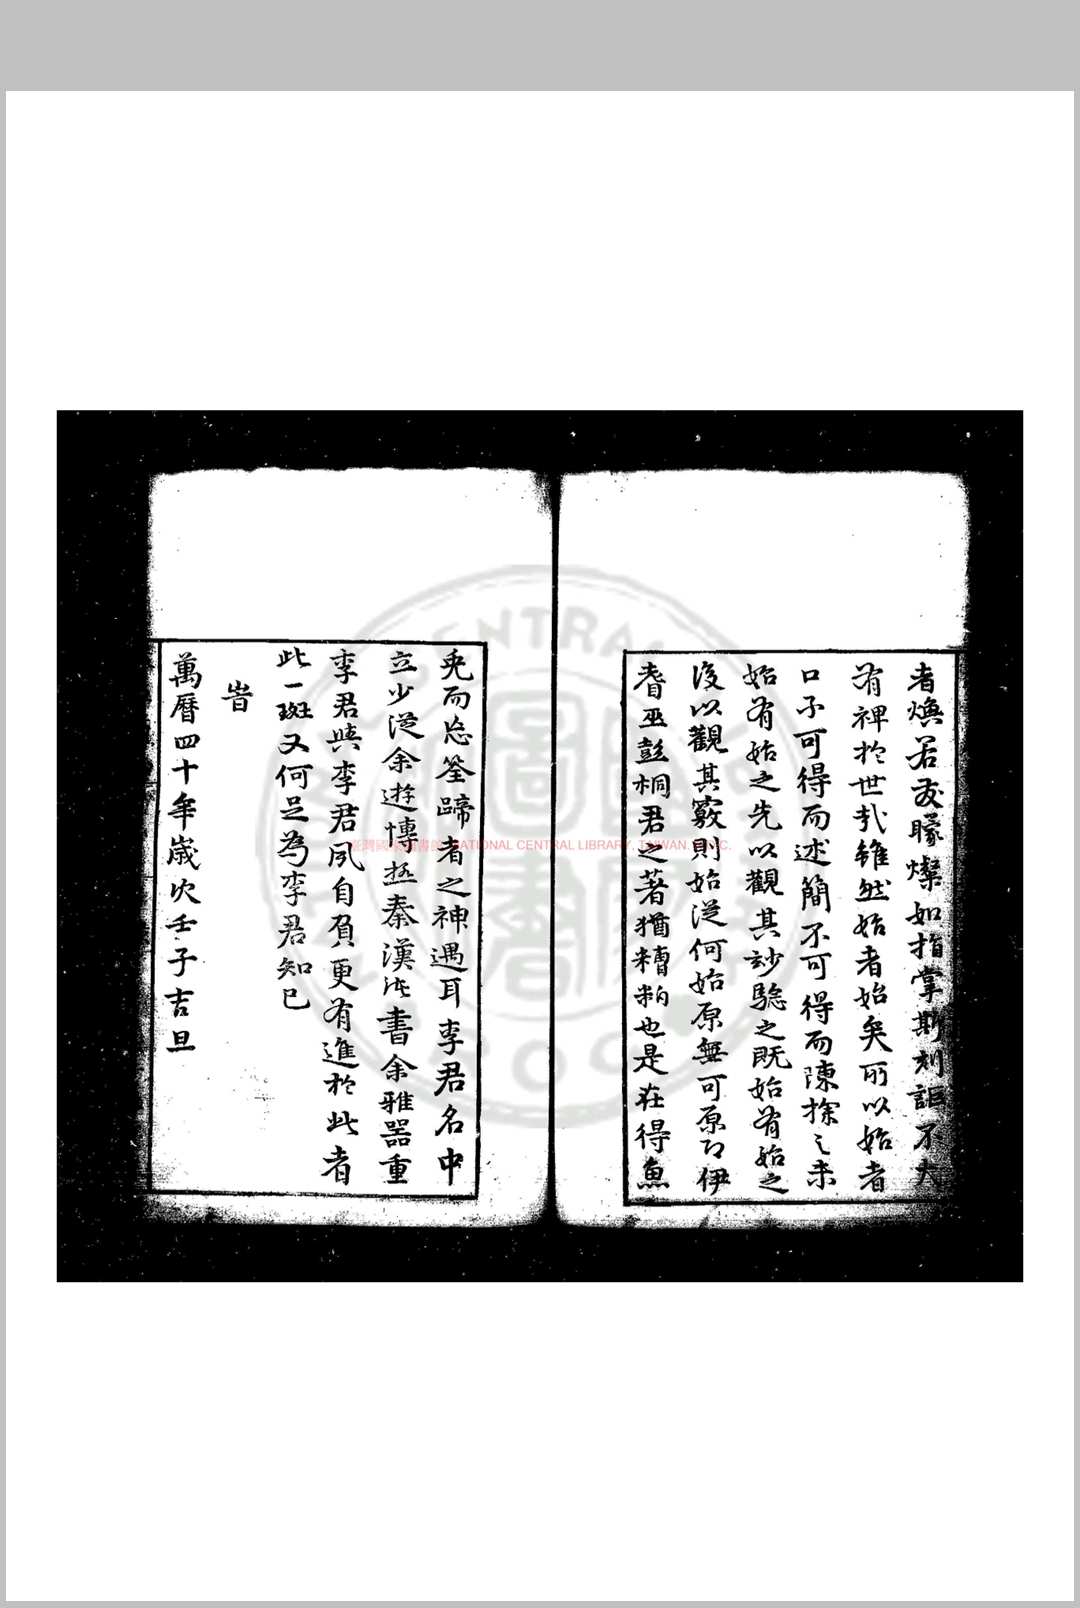 者煥若發矇燦如指掌斯刻詎不大
有裨於世哉雖然始者始矣所以始者
口不可得而述簡不可得而陳探之未
始有始之先以觀其妙驗之既始有始之
後以觀其竅則始從何始原無可原即伊
耆巫彭桐君之著猶糟粕也是在得魚
兎而忘筌蹄者之神遇耳李君名中
立少從余遊慱極秦漢諸書余雅器重
李君與李君夙自負更有進於此者
此一斑又何足為李君知已
旹
萬曆四十年歲次壬子吉旦
臺灣國家圖書館, NATIONAL CENTRAL LIBRARY, TAIWAN, R.O.C.